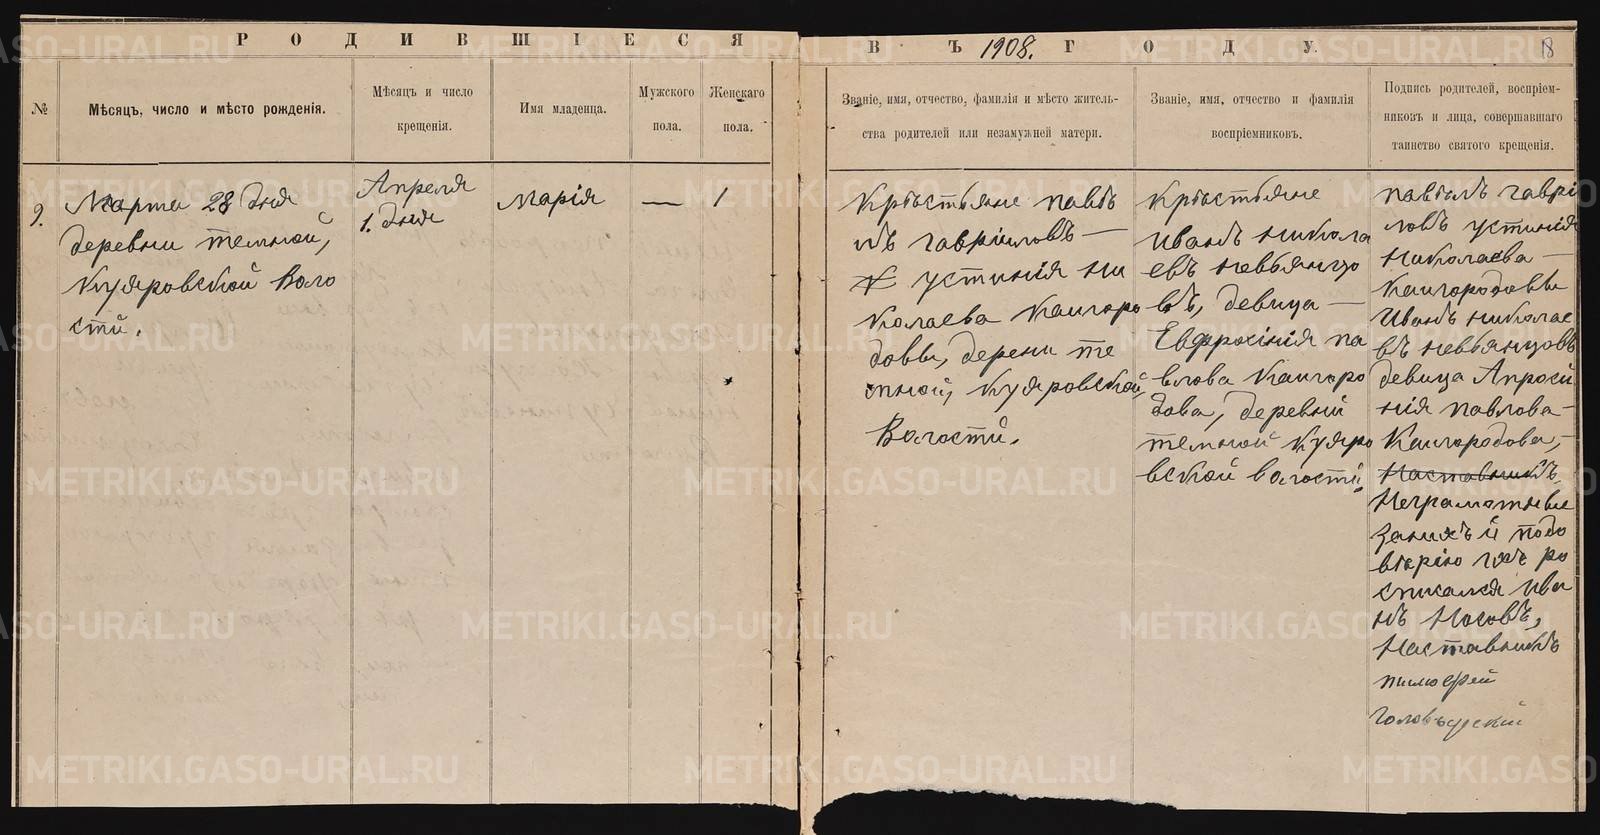 РОДИВШІЕСЯ
ВЪ 1908. ГОДУ.
18
№
Мѣсяцъ, число и мѣсто рожденія.
Мѣсяцъ и число
крещенія.
Имя младенца.
Мужского
пола.
Женскаго
пола.
Званіе, имя, отчество, фамилія и мѣсто житель-
ства родителей или незамужней матери.
Званіе, имя, отчество и фамилія
воспріемниковъ.
Подпись родителей, воспріем-
никовъ и лица, совершавшаго
таинство святого крещенія.
9.
Марта 28 дня
деревни темной,
Куяровской Воло
сти.
Апреля
1. дня
Марія
—
1
Крѣстьяне павѣ
лъ гавріиловъ —
устинія ни
колаева Каигоро
довы, дерени те
мной, Куяровской,
Волости.
Крѣстьяне
Иванъ никола
евъ невьянцо
въ, девица —
Евфросінія па
влова Каигоро
дова, деревни
темной Куяро
вской волости
павѣлъ гаврі
ловъ устинія
николаева —
Каигородовы
Иванъ николае
въ невьянцовъ
девица Апроси
нія павлова —
Каигородова, —
Наставникъ
Неграмотные
занихъ и подо
вѣрію ихъ ро
списался ива
нъ Носовъ,
Наставникъ
тимофей
METRIKI.GASO-URAL.RU